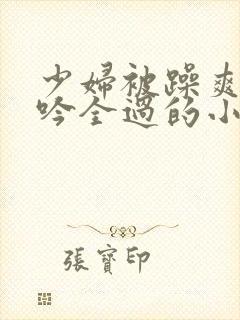 少婦被躁爽
吟全過的小
張寶印